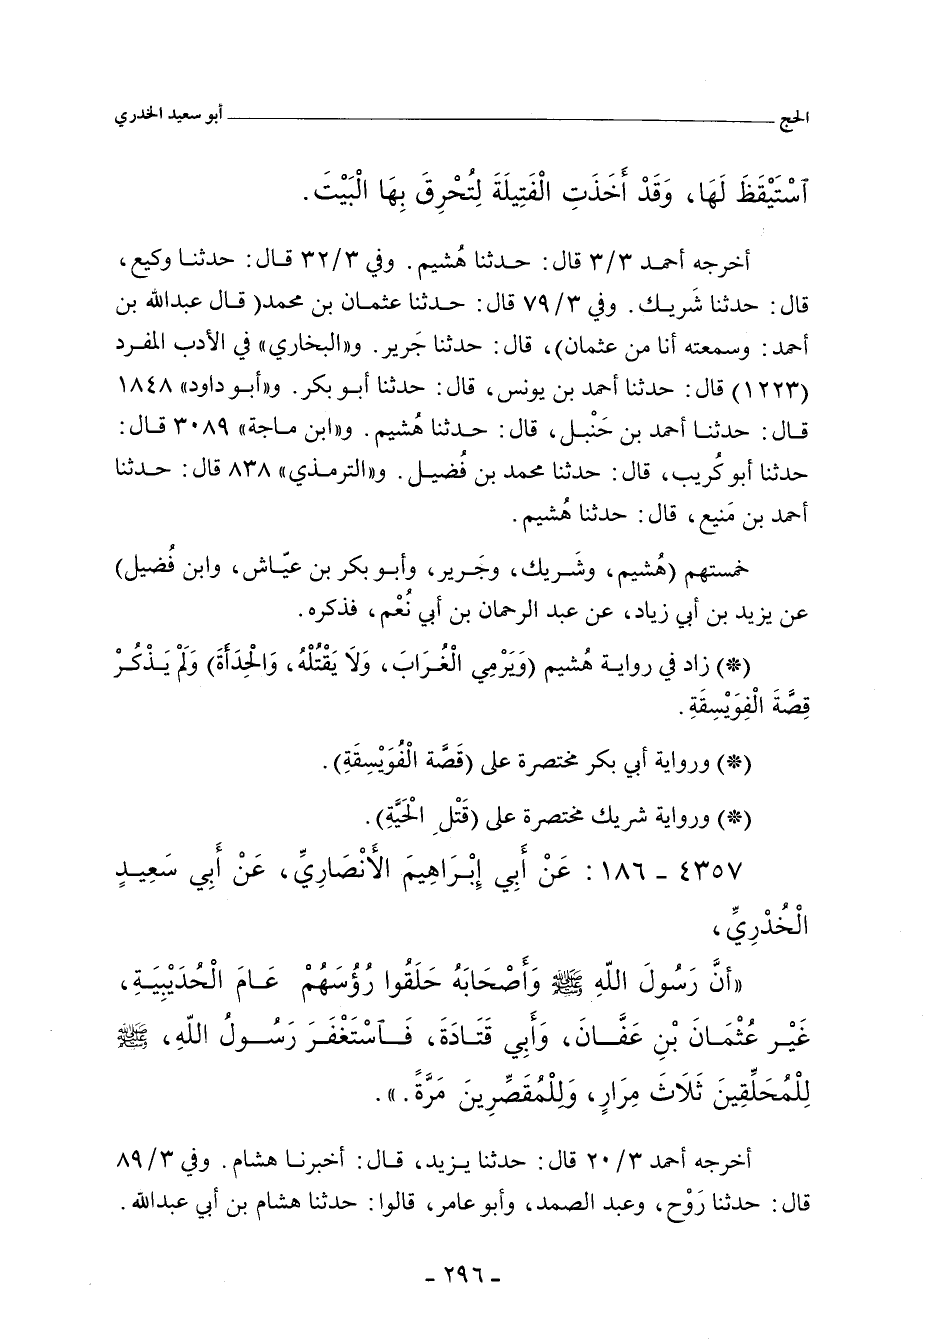 الحج ــــــــــــــــــــــــــــــــــــ أبو سعيد الخدري
ٱسْتَيْقَظَ لَهَا، وَقَدْ أَخَذَتِ الْفَتِيلَةَ لِتُحْرِقَ بِهَا الْبَيْتَ.
أخرجه أحمد ٣/٣ قال: حدثنا هُشيم. وفي ٣٢/٣ قال: حدثنا وكيع،
قال: حدثنا شَريك. وفي ٧٩/٣ قال: حدثنا عثمان بن محمد( قال عبدالله بن
أحمد: وسمعته أنا من عثمان)، قال: حدثنا جَرير. و«البخاري» في الأدب المفرد
(١٢٢٣) قال: حدثنا أحمد بن يونس، قال: حدثنا أبو بكر. و«أبو داود» ١٨٤٨
قال: حدثنا أحمد بن حَنْبل، قال: حدثنا هُشيم. و«ابن ماجة» ٣٠٨٩ قال:
حدثنا أبو كُريب، قال: حدثنا محمد بن فُضيل. و«الترمذي» ٨٣٨ قال: حدثنا
أحمد بن مَنيع، قال: حدثنا هُشيم.
خمستهم (هُشيم، وشَريك، وجَرير، وأبو بكر بن عيّاش، وابن فُضيل)
عن يزيد بن أبي زياد، عن عبد الرحمان بن أبي نُعْم، فذكره.
(*) زاد في رواية هُشيم (وَيَرْمِي الْغُرَابَ، وَلَا يَقْتُلْهُ، وَالْحِدَأَةَ) وَلَمْ يَذْكُرْ
قِصَّةَ الْفِوَيْسِقَةِ.
(*) ورواية أبي بكر مختصرة على (قَصَّة الْفُوَيْسِقَةِ).
(*) ورواية شريك مختصرة على (قَتْلِ الْحَيَّةِ).
٤٣٥٧ ـ ١٨٦: عَنْ أَبِي إِبْرَاهِيمَ الأَنْصَارِيِّ، عَنْ أَبِي سَعِيدٍ
الْخُدْرِيِّ،
«أَنَّ رَسُولَ اللهِ ﷺ وَأَصْحَابَهُ حَلَقُوا رُؤُسَهُمْ عَامَ الْحُدَيْبِيَةِ،
غَيْر عُثْمَانَ بْنِ عَفَّانَ، وَأَبِي قَتَادَةَ، فَٱسْتَغْفَرَ رَسُولُ اللهِ، ﷺ
لِلْمُحَلِّقِينَ ثَلَاثَ مِرَارٍ، وَلِلْمُقَصِّرِينَ مَرَّةً.».
أخرجه أحمد ٢٠/٣ قال: حدثنا يزيد، قال: أخبرنا هشام. وفي ٨٩/٣
قال: حدثنا رَوْح، وعبد الصمد، وأبو عامر، قالوا: حدثنا هشام بن أبي عبدالله.
ـ ٢٩٦ ـ